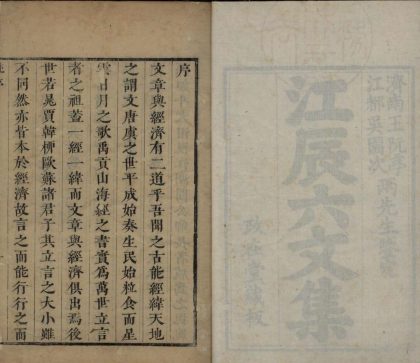 濟南王阮亭兩先生鑒定
江都吳園次
江辰六文集
政在堂藏板
序
文章與經濟有二道乎吾聞之古能經緯天地
之謂文唐虞之世平成始奏生民始粒食而星
雲日月之歌禹貢山海經之書實為萬世立言
者之祖蓋一經一緯而文章與經濟俱出焉後
世若晁賈韓柳歐蘇諸君子其立言之大小雖
不同然亦皆本於經濟故言之而能行行之而